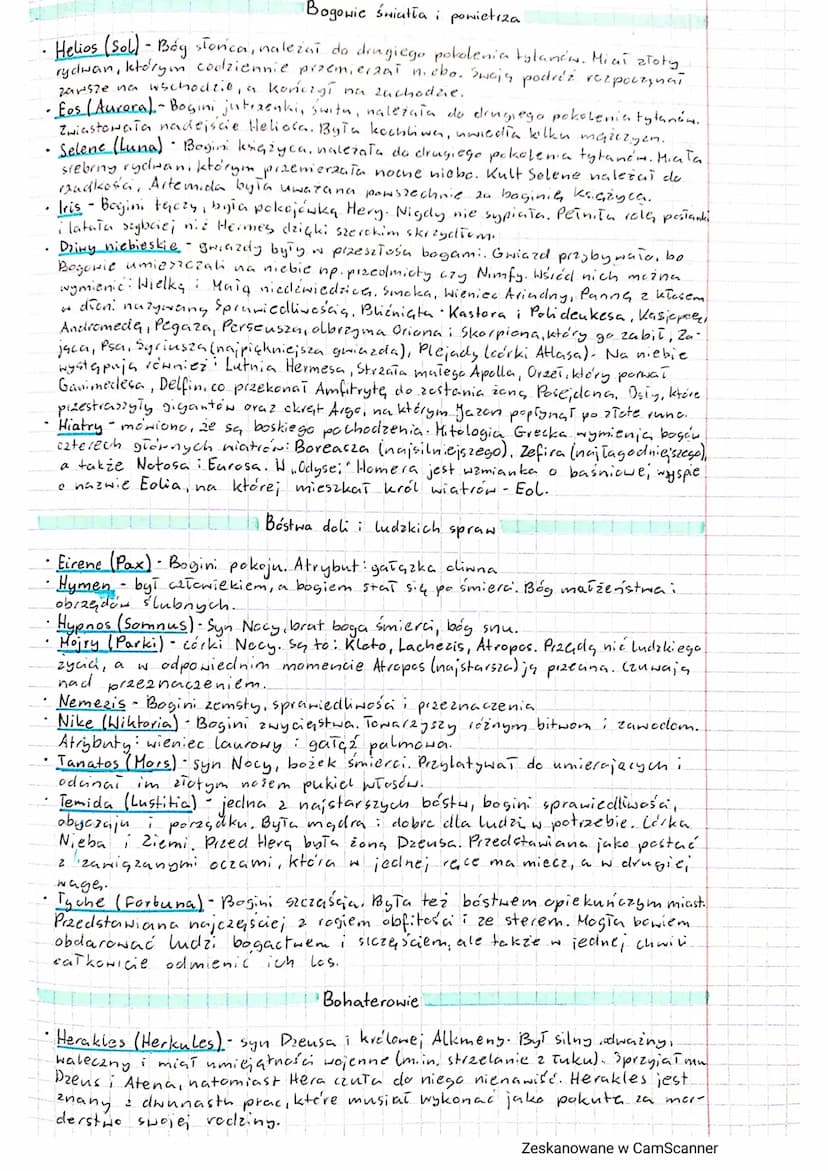 Bogowie światła i powietrza
• Helios (Sol) - Bóg słońca, należał do drugiego pokolenia tytanów. Miał złoty
rydwan, którym codziennie przemierzał niebo. Swoją podróż rozpoczynał
zawsze na wschodzie, a kończył na zachodzie.
• Eos (Aurora) - Bogini jutrzenki, świtu, należała do drugiego pokolenia tytanów.
Zwiastowała nadejście Heliosa. Była kochliwa, uwiodła kilku mężczyzn.
• Selene (Luna) - Bogini księżyca, należała do drugiego pokolenia tytanów. Miała
srebrny rydwan, którym przemierzała nocne niebo. Kult Selene należał do
rzadkości, Artemida była uważana powszechnie za boginię księżyca.
• Iris - Bogini tęczy, była pokojówką Hery. Nigdy nie sypiała. Pełniła rolę posłanki
i latała szybciej niż Hermes dzięki szerokim skrzydłom.
• Dziwy niebieskie - gwiazdy były w przeszłości bogami. Gwiazd przybywało, bo
Bogowie umieszczali na niebie np. przedmioty czy Nimfy. Wśród nich można
wymienić: Wielką i Małą niedźwiedzicę, Smoka, Wieniec Ariadny, Pannę z kłosem
w dłoni nazywaną Sprawiedliwością, Bliźnięta - Kastora i Polideukesa, Kasjopeę,
Andromedę, Pegaza, Perseusza, olbrzyma Oriona i Skorpiona, który go zabił, Za-
jąca, Psa, Syriusza (najpiękniejsza gwiazda), Plejady (córki Atlasa). Na niebie
występują również: Lutnia Hermesa, Strzała małego Apolla, Orzeł, który porwał
Ganimedesa, Delfin, co przekonał Amfitrytę do zostania żoną Posejdona, Osły, które
przestraszyły gigantów oraz okręt Argo, na którym Jazon popłynął po złote runo.
• Wiatry - mówiono, że są boskiego pochodzenia. Mitologia Grecka wymienia bogów
czterech głównych wiatrów: Boreasza (najsilniejszego), Zefira (najłagodniejszego),
a także Notosa i Eurosa. W „Odysei" Homera jest wzmianka o baśniowej wyspie
o nazwie Eolia, na której mieszkał król wiatrów - Eol.
Bóstwa doli i ludzkich spraw
• Eirene (Pax) - Bogini pokoju. Atrybut: gałązka oliwna
• Hymen - był człowiekiem, a bogiem stał się po śmierci. Bóg małżeństwa i
obrzędów ślubnych.
• Hypnos (Somnus) - Syn Nocy, brat boga śmierci, bóg snu.
• Mojry (Parki) - córki Nocy. Są to: Kloto, Lachezis, Atropos. Przędą nić ludzkiego
życia, a w odpowiednim momencie Atropos (najstarsza) ją przecina. Czuwają
nad przeznaczeniem.
• Nemezis - Bogini zemsty, sprawiedliwości i przeznaczenia
• Nike (Wiktoria) - Bogini zwycięstwa. Towarzyszy różnym bitwom i zawodom.
Atrybuty: wieniec laurowy i gałąź palmowa.
• Tanatos (Mors) - syn Nocy, bożek śmierci. Przylatywał do umierających i
odcinał im złotym nożem pukiel włosów.
• Temida (Lustitia) - jedna z najstarszych bóstw, bogini sprawiedliwości,
obyczaju i porządku. Była mądra i dobra dla ludzi w potrzebie. Córka
Nieba i Ziemi. Przed Herą była żoną Dzeusa. Przedstawiana jako postać
z zawiązanymi oczami, która w jednej ręce ma miecz, a w drugiej
wagę.
• Tyche (Fortuna) - Bogini szczęścia. Była też bóstwem opiekuńczym miast.
Przedstawiana najczęściej z rogiem obfitości i ze sterem. Mogła bowiem
obdarować ludzi bogactwem i szczęściem, ale także w jednej chwili
całkowicie odmienić ich los.
Bohaterowie
• Herakles (Herkules) - syn Dzeusa i królowej Alkmeny. Był silny, odważny,
waleczny i miał umiejętności wojenne (m.in. strzelanie z łuku). Sprzyjał mu
Dzeus i Atena, natomiast Hera czuła do niego nienawiść. Herakles jest
znany z dwunastu prac, które musiał wykonać jako pokutę za mor-
derstwo swojej rodziny.
Zeskanowane w CamScanner